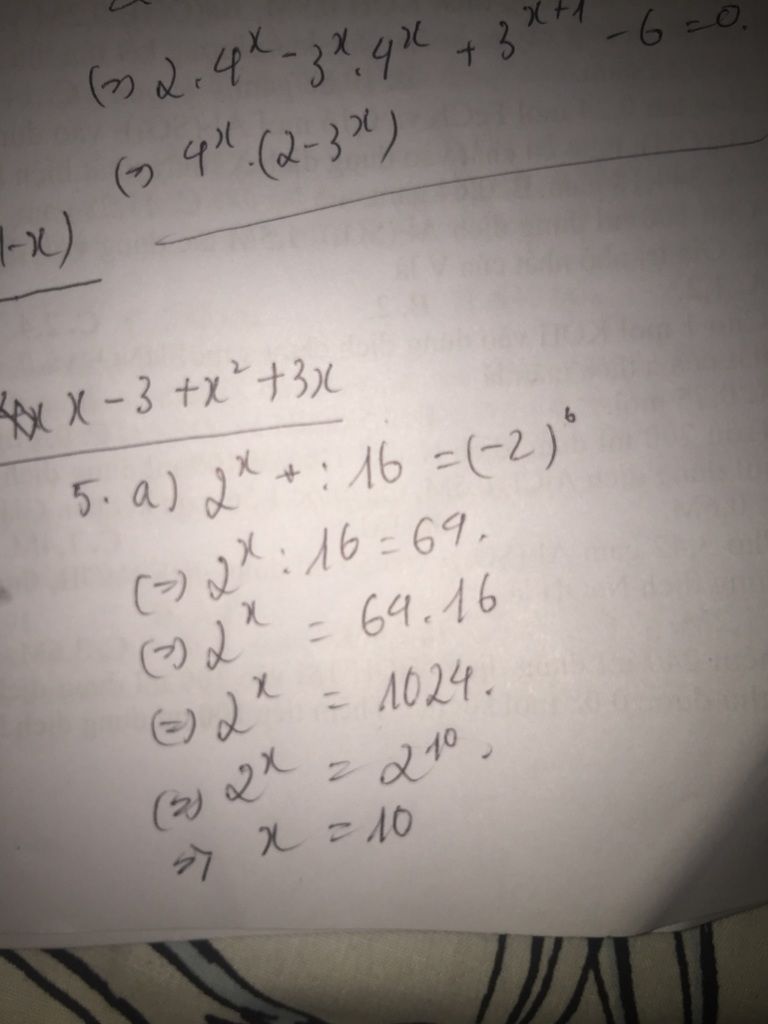 (=) 2 . 4^x - 3^x . 4^x + 3^{x+1} - 6 = 0.
(=) 4^x . (2 - 3^x)
1-x)
x - 3 + x² + 3x
5. a) 2^x : 16 = (-2)^6
(=) 2^x : 16 = 64.
(=) 2^x = 64 . 16
(=) 2^x = 1024.
(=) 2^x = 2^{10},
=> x = 10